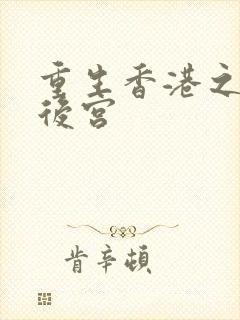 重生香港之
後宮
肯辛頓